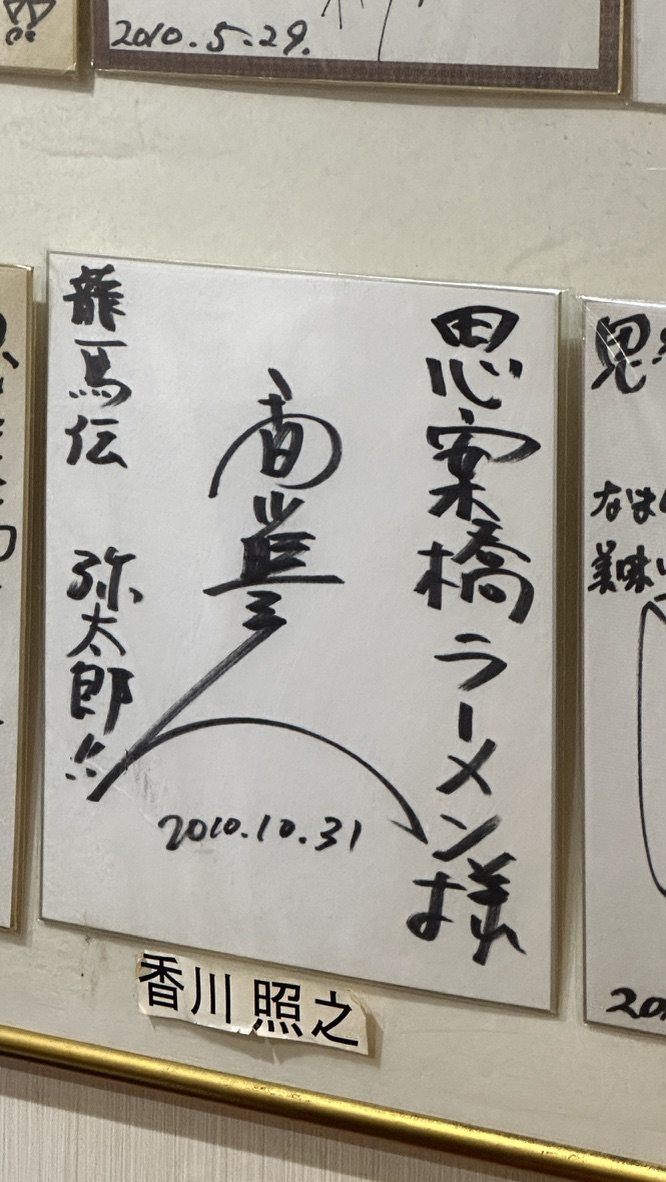 2010.5.29.
思案橋ラーメン様
龍馬伝 弥太郎!!
2010.10.31
香川 照之
なま
美味